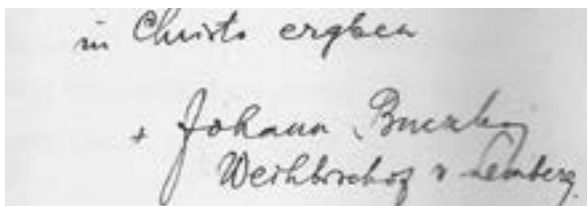 in Christo ergben
+ Johann Buczko
Weihbischof v Lemberg